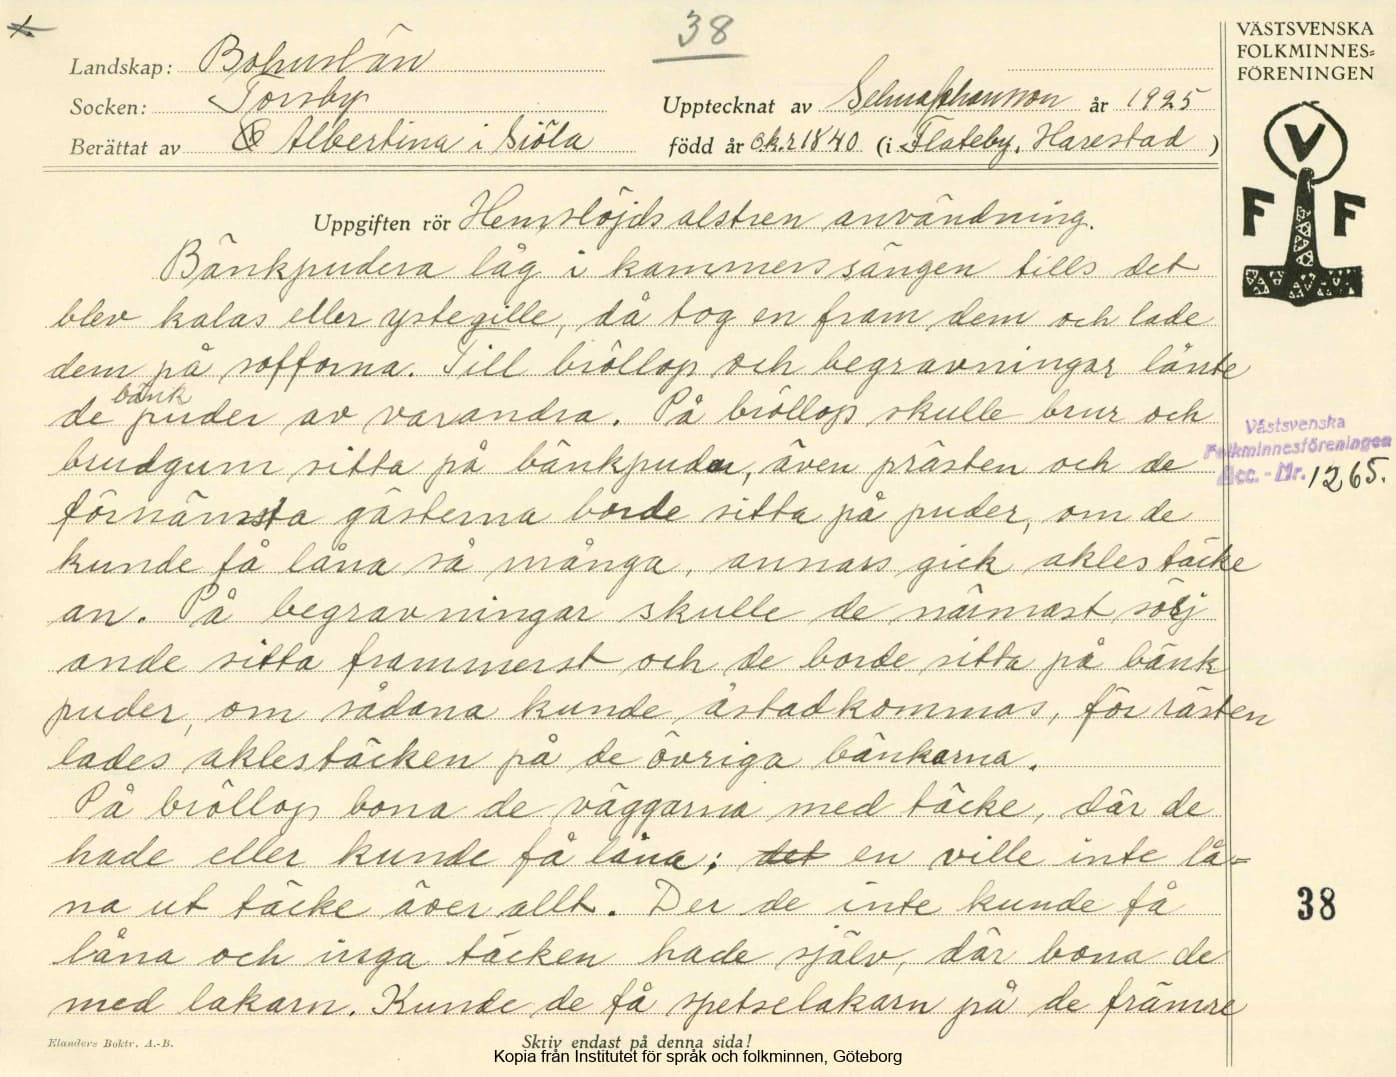 38
VÄSTSVENSKA
FOLKMINNES=
FÖRENINGEN
Landskap: Bohuslän
Socken: Torsby
Upptecknat av Selma Johansson år 1925
Berättat av Albertina i Siöla
född år c.k.r 1840 (i Flateby, Harestad)
V
F F
Uppgiften rör Hemslöjdsalstren användning.
Bänkpudera låg i kammerssängen tills det
blev kalas eller ystegille, då tog en fram dem och lade
dem på sofforna. Till bröllop och begravningar lånte
de bänk puder av varandra. På bröllop skulle brur och
brudgum sitta på bänkpuder, även prästen och de
förnämsta gästerna borde sitta på puder, om de
kunde få låna så många, annars gick aklestäcke
an. På begravningar skulle de närmast sörj
ande sitta frammerst och de borde sitta på bänk
puder, om sådana kunde åstadkommas, för rästen
lades aklestäcken på de övriga bänkarna.
På bröllop bona de väggarna med täcke, där de
hade eller kunde få låna; det en ville inte lå=
na ut täcke över allt. Der de inte kunde få
låna och inga täcken hade själv, där bona de
med lakarn. Kunde de få spetselakarn på de främre
Västsvenska
Folkminnesföreningen
Acc. - Nr. 1265.
38
Elanders Boktr. A.-B.
Skriv endast på denna sida!
Kopia från Institutet för språk och folkminnen, Göteborg